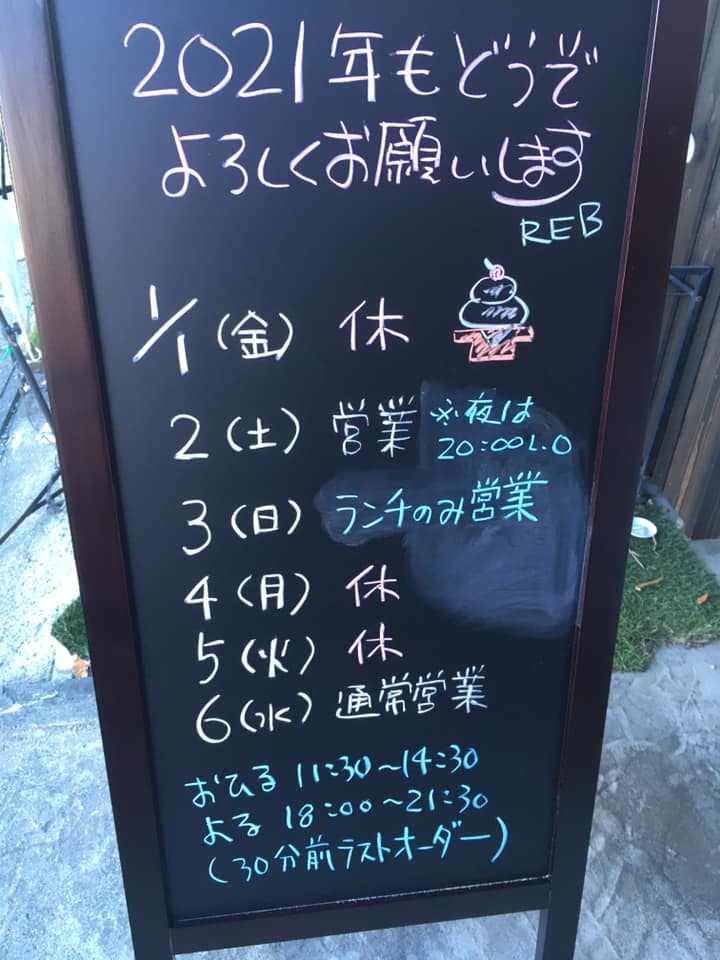 2021年もどうぞ
よろしくお願いします
REB
1/1(金) 休
2(土) 営業 ※夜は
20:00L.O
3(日) ランチのみ営業
4(月) 休
5(火) 休
6(水) 通常営業
おひる 11:30～14:30
よる 18:00～21:30
(30分前ラストオーダー)